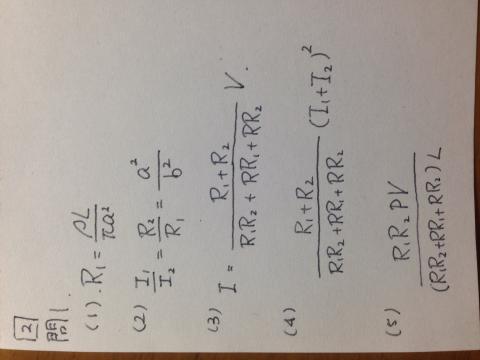 [2]
問1.
(1). R₁ = ρL/πa²
(2) I₁/I₂ = R₂/R₁ = a²/b²
(3) I = (R₁+R₂)/(R₁R₂+RR₁+RR₂) V.
(4) (R₁+R₂)/(R₁R₂+RR₁+RR₂) (I₁+I₂)²
(5) R₁R₂PV/(R₁R₂+RR₁+RR₂)L